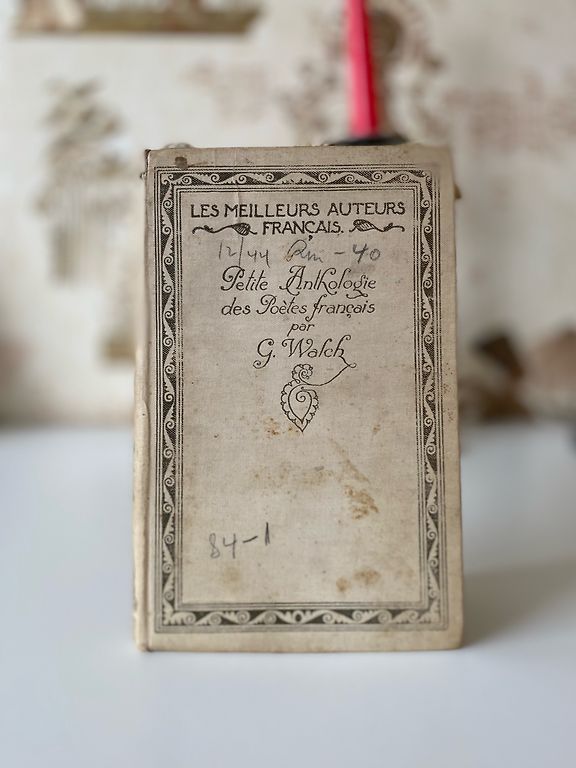 LES MEILLEURS AUTEURS
FRANÇAIS.
12/44 – 40
Petite Anthologie
des Poètes français
par
G. Walch
84-1